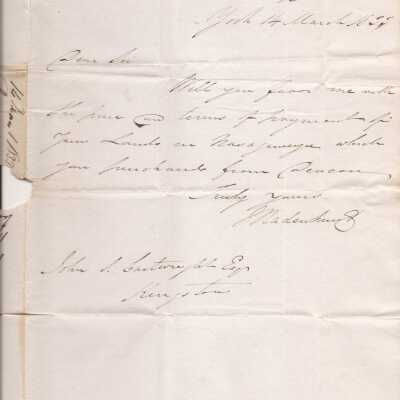 York 14 March 1833
Dear Sir
Will you favor me with
the price and terms of payment of
Your Lands in Nassagaweya which
you purchased from Deacon
Truly yours
John S. Cartwright Esq
Kingston